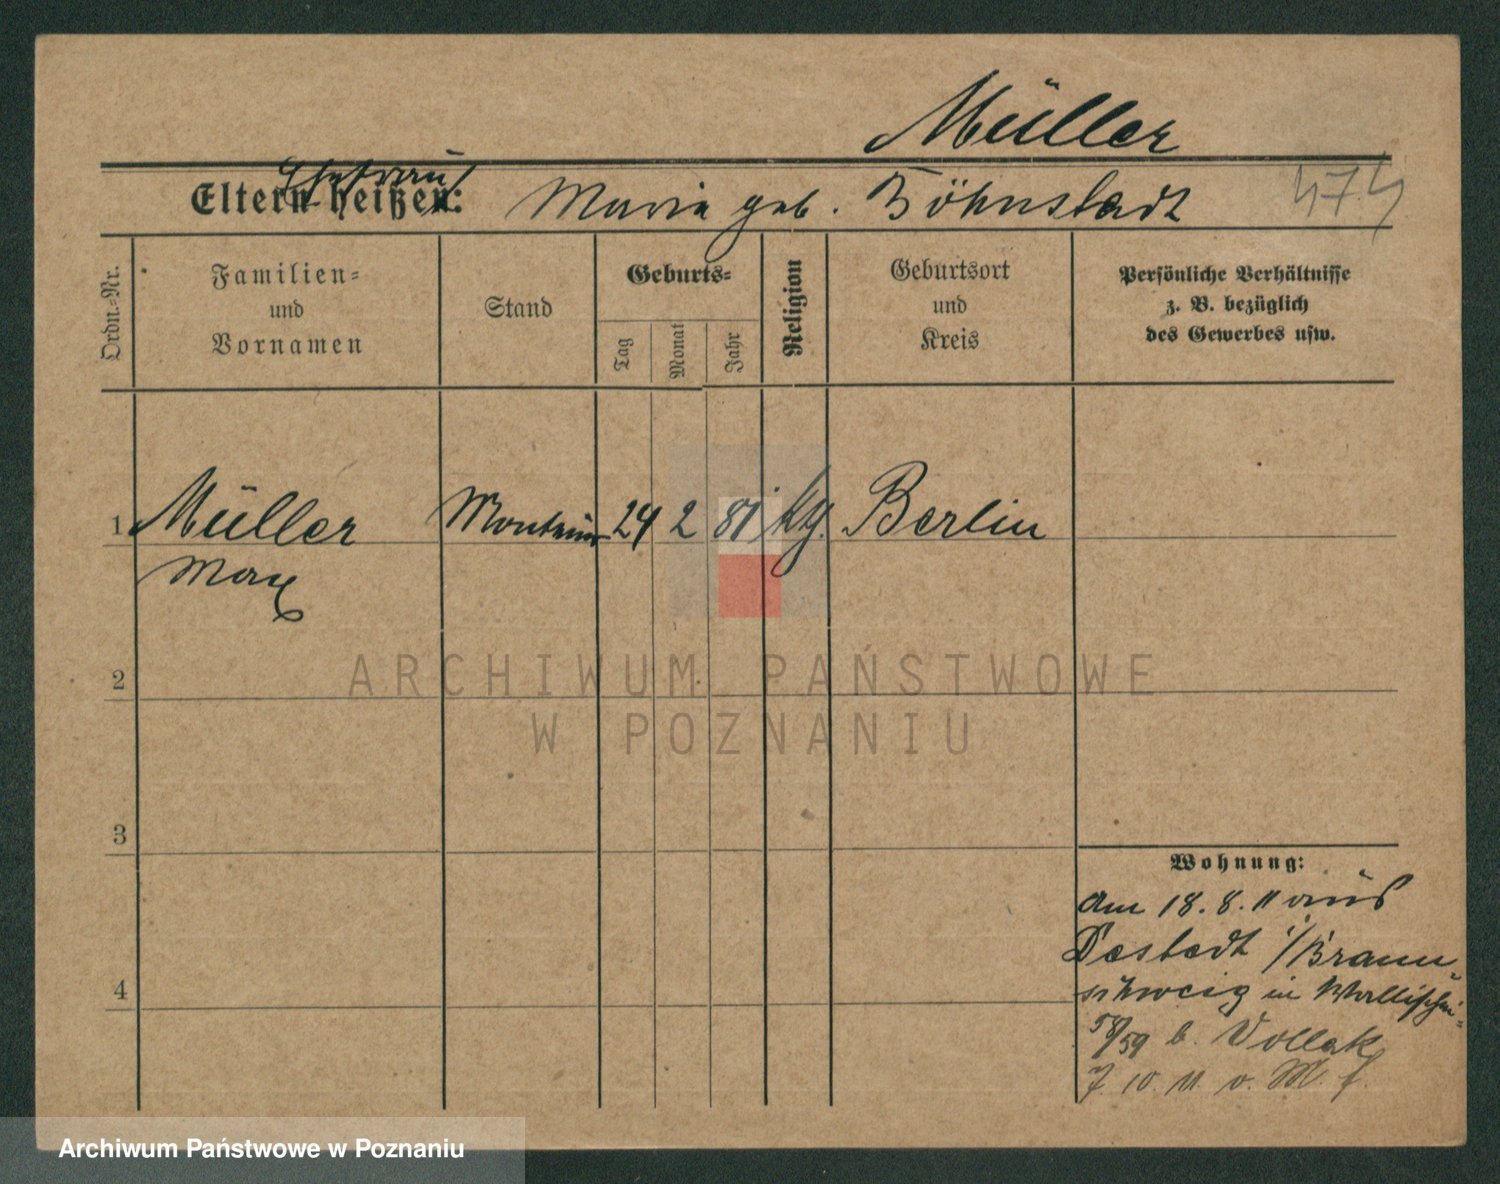 Müller
Ehefrau
Eltern heißen: Maria geb. Böhnstadt 474
Ordn.-Nr.
Familien-
und
Vornamen
Stand
Geburts-
Tag
Monat
Jahr
Religion
Geburtsort
und
Kreis
Persönliche Verhältnisse
z. B. bezüglich
des Gewerbes usw.
1 Müller Monteur 24 2 81 kg. Berlin
Max
2
ARCHIWUM PAŃSTWOWE
W POZNANIU
3
Wohnung:
am 18. 8. 11 aus
Destedt i/Braun
schweig in Wallischei-
4
58/59 b. Vollak
7. 10. 11 v. M. f.
Archiwum Państwowe w Poznaniu